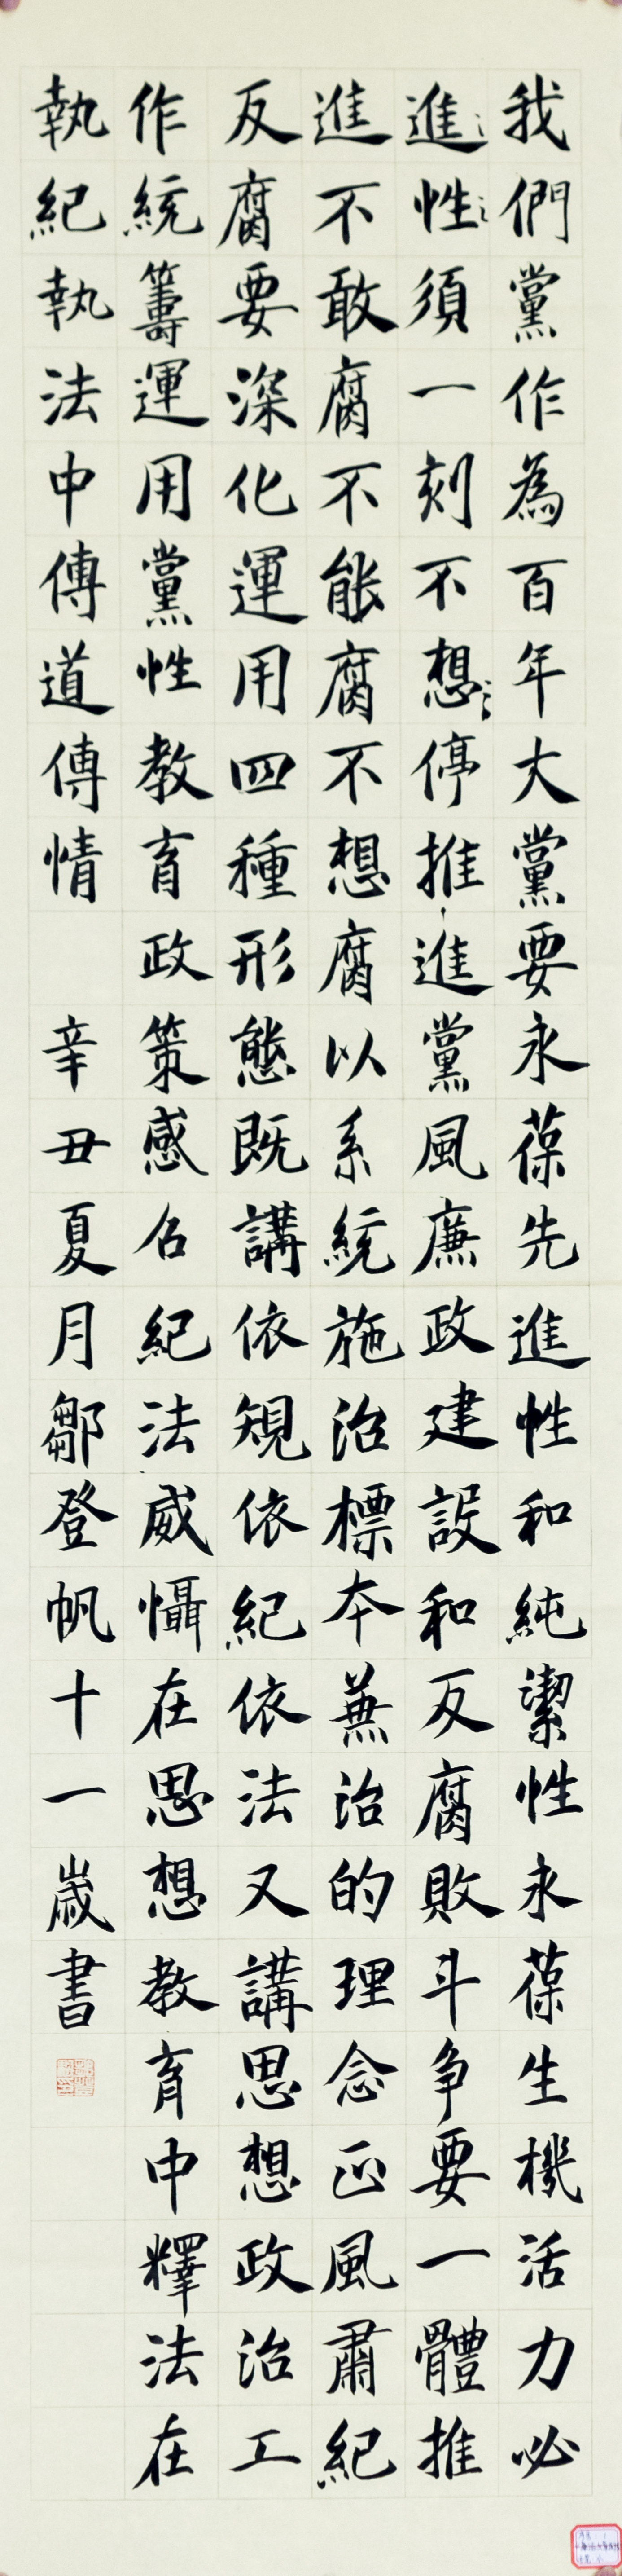 我們黨作為百年大黨要永葆先進性和純潔性永葆生機活力必
進性須一刻不想停推進黨風廉政建設和反腐敗斗争要一體推
進不敢腐不能腐不想腐以系統施治標本兼治的理念正風肅紀
反腐要深化運用四種形態既講依規依紀依法又講思想政治工
作統籌運用黨性教育政策感召紀法威懾在思想教育中釋法在
執紀執法中傳道傳情 辛丑夏月鄒登帆十一歲書